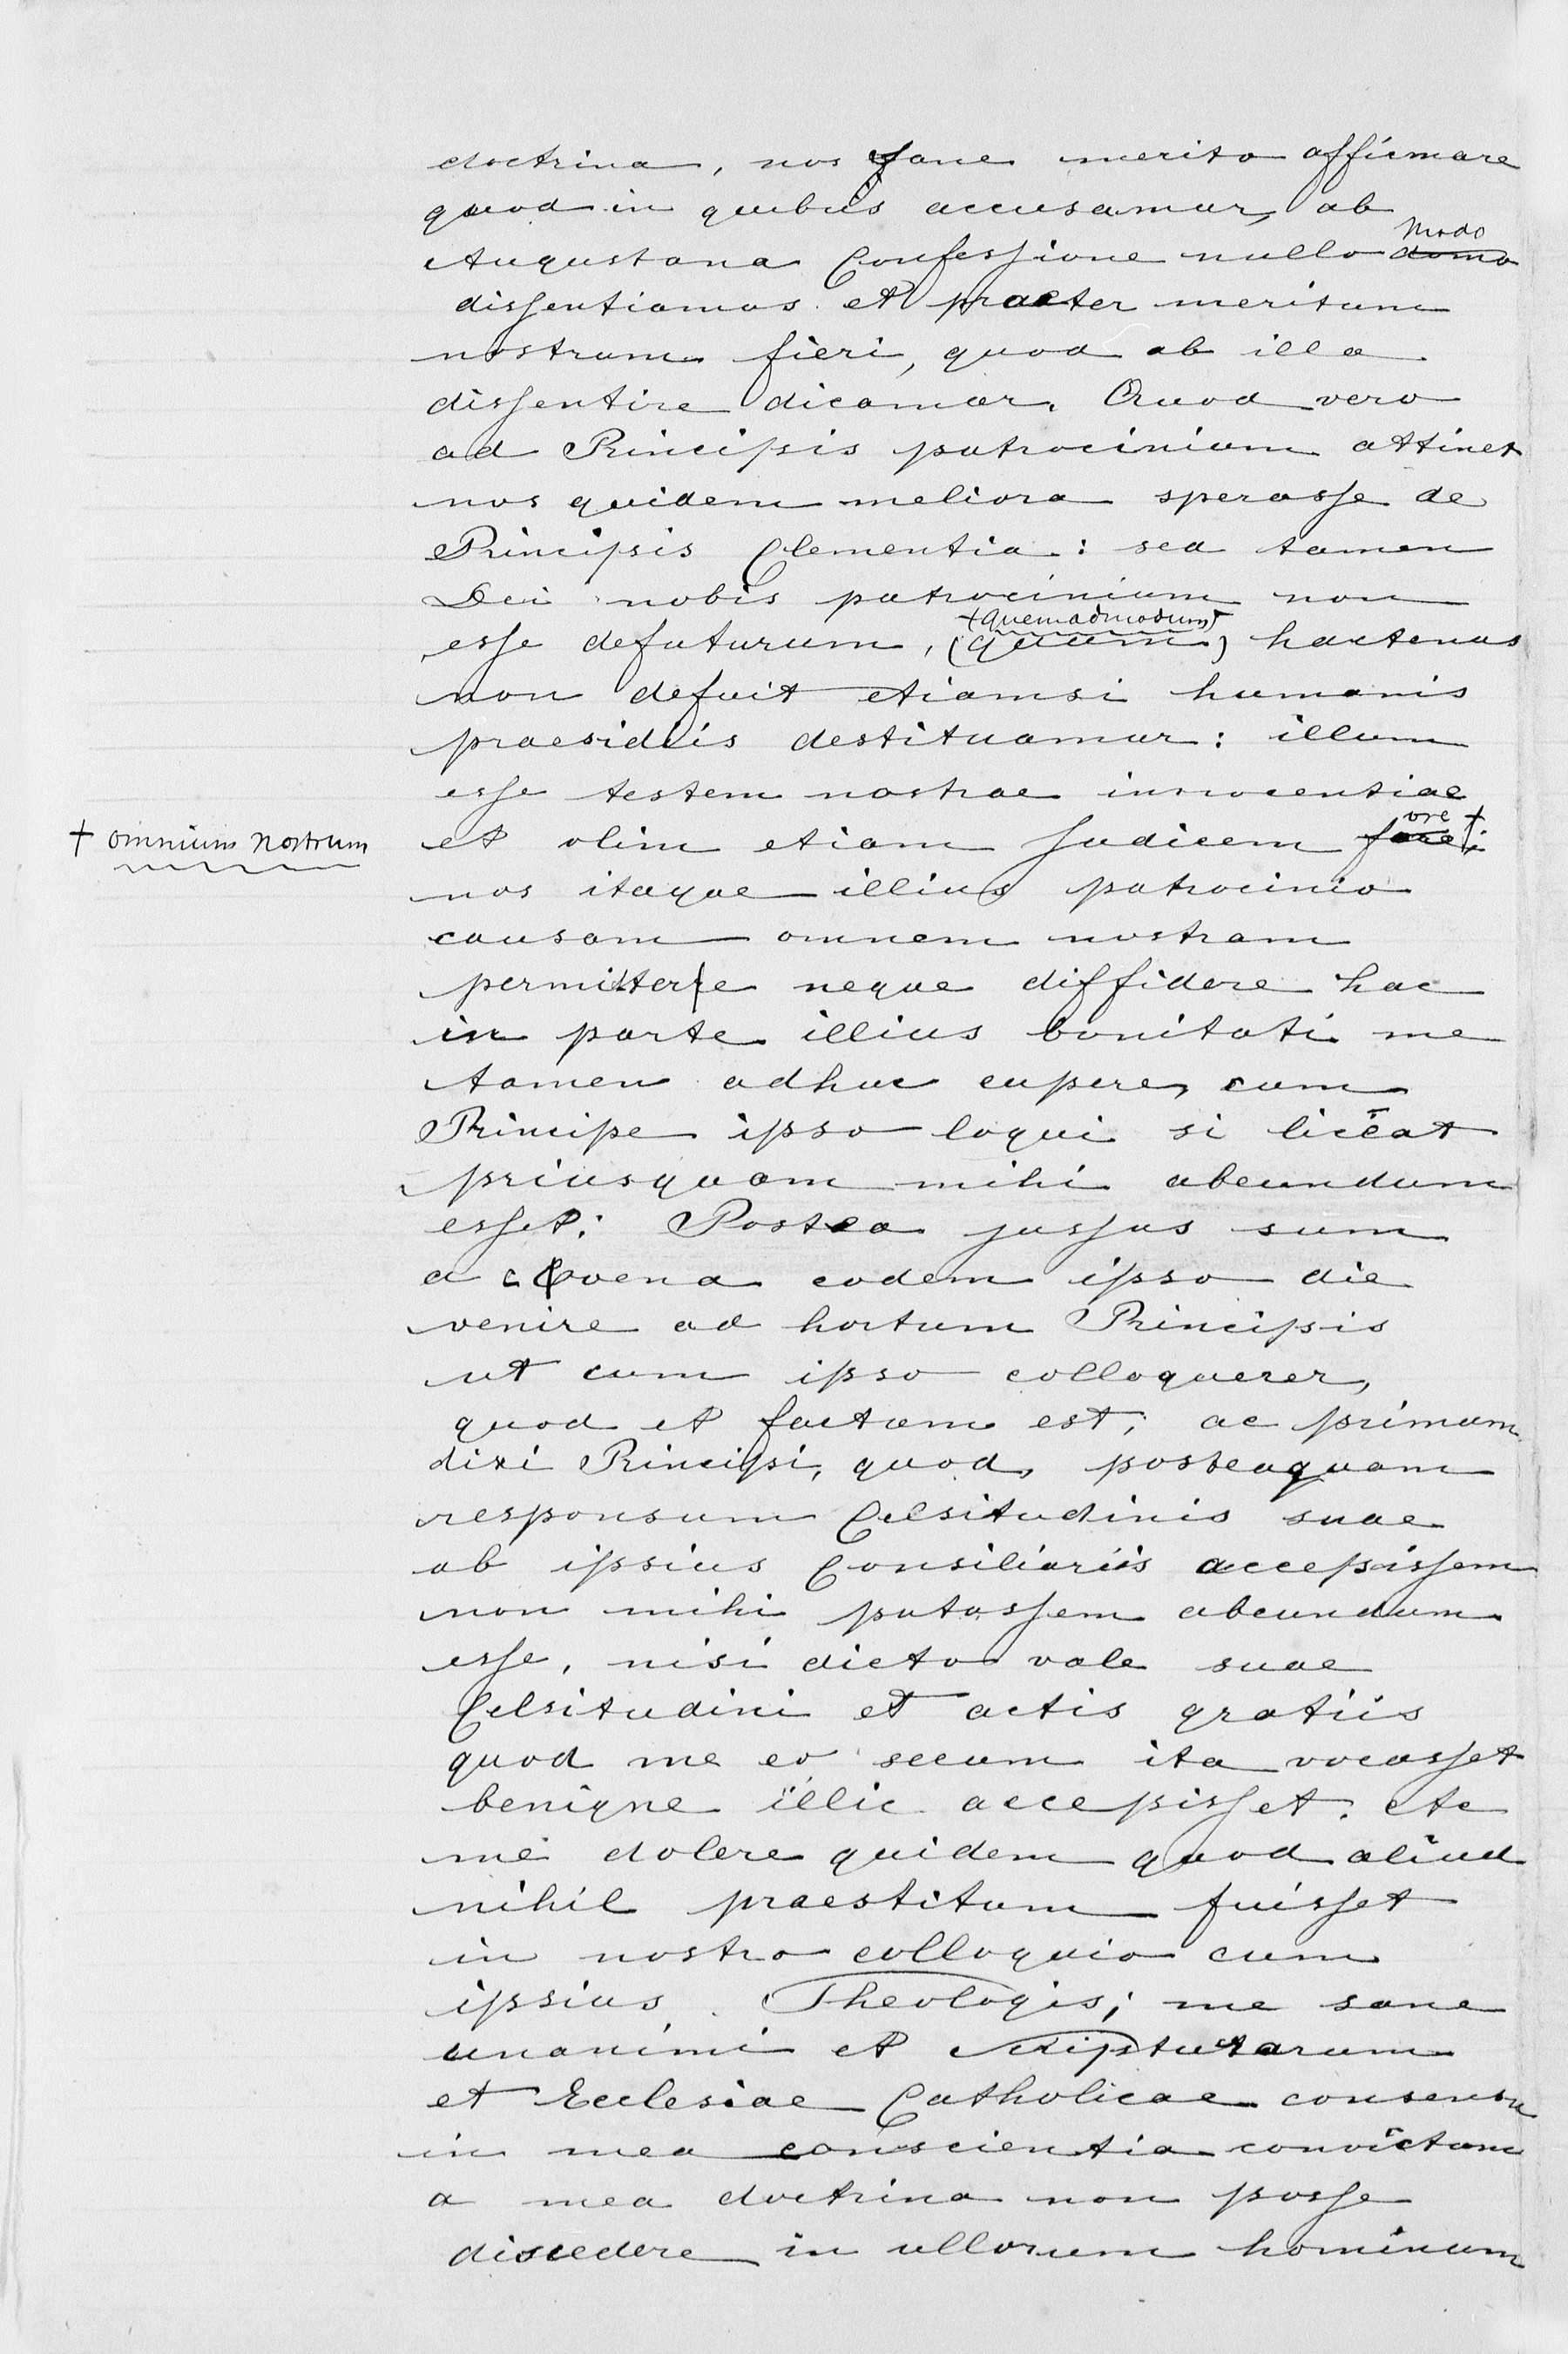 doctrina, nos sane merito affirmare
quod in quibus accusamur, ab
Augustana Confessione nullo modo domo
dissentiamus et praeter meritum
nostrum fieri, quod ab illa
dissentire dicamur. Quod vero
ad Principis patrocinium attinet
nos quidem meliora sperasse de
Principis Clementia: sed tamen
Dei nobis patrocinium non
+quemadmodum+
esse defuturum, (quum) hactenus
non defuit etiamsi humanis
praesidiis destituamur: illum
esse testem nostrae innocentiae
+ omnium nostrum
et olim etiam Judicem fore +
nos itaque illius patrocinio
causam omnem nostram
permittere neque diffidere hac
in parte illius bonitati me
tamen adhuc cupere, cum
Principe ipso loqui si liceat
priusquam mihi abeundum
esset: Postea jussus sum
a coena eodem ipso die
venire ad hortum Principis
ut cum ipso colloquerer,
quod et factum est; ac primum
dixi Principi, quod, posteaquam
responsum Celsitudinis suae
ab ipsius Consiliariis accepissem
non mihi putassem abeundum
esse, nisi dicto vale suae
Celsitudini et actis gratiis
quod me eo secum ita vocasset
benigne illic accepisset. etc
me dolere quidem quod aliud
nihil praestitum fuisset
in nostro colloquio cum
ipsius Theologis; me sane
unanimi et scripturarum
et Ecclesiae Catholicae consensu
in mea conscientia convictum
a mea doctrina non posse
discedere in ullorum hominum